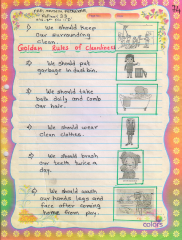 We should keep
our surrounding
clean.
Golden Rules of Cleanliness
1) We should put
garbage in dust bin.
2) We should take
bath daily and comb
our hair.
3) We should wear
clean clothes.
4) We should brush
our teeth twice a
day.
5) We should wash
our hands legs and
face after coming
home from play.
colors